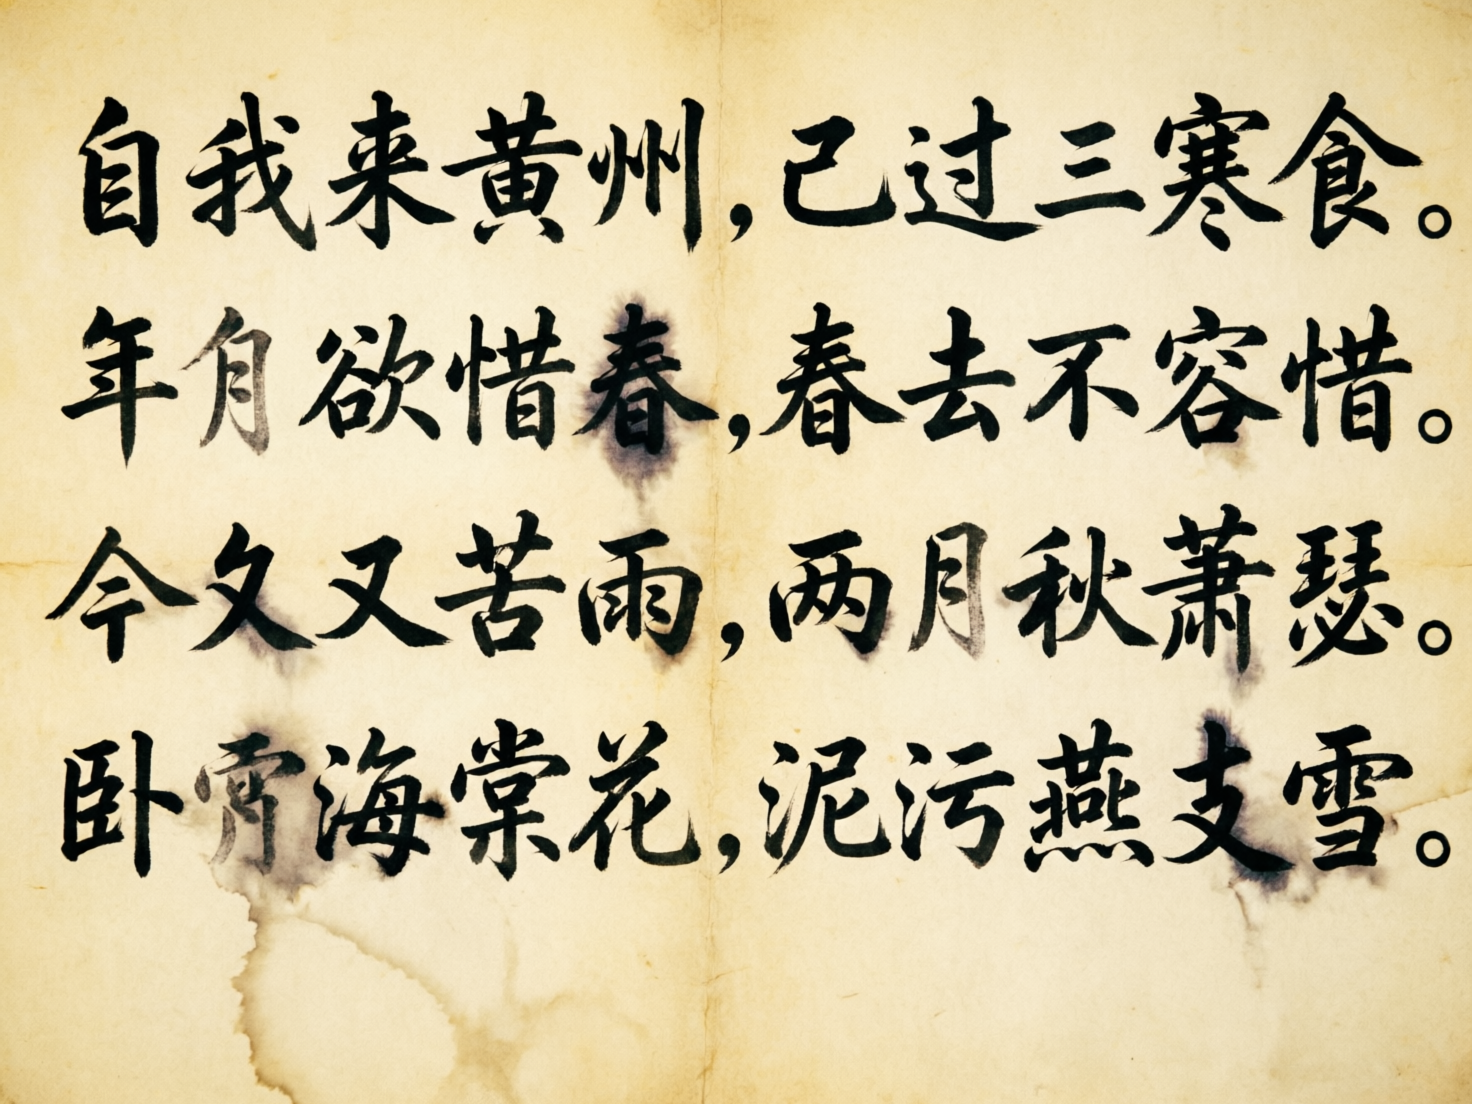 自我来黄州,已过三寒食。
年欲惜春,春去不容惜。
今夂又苦雨,两月秋萧瑟。
卧霄海棠花,泥污燕支雪。